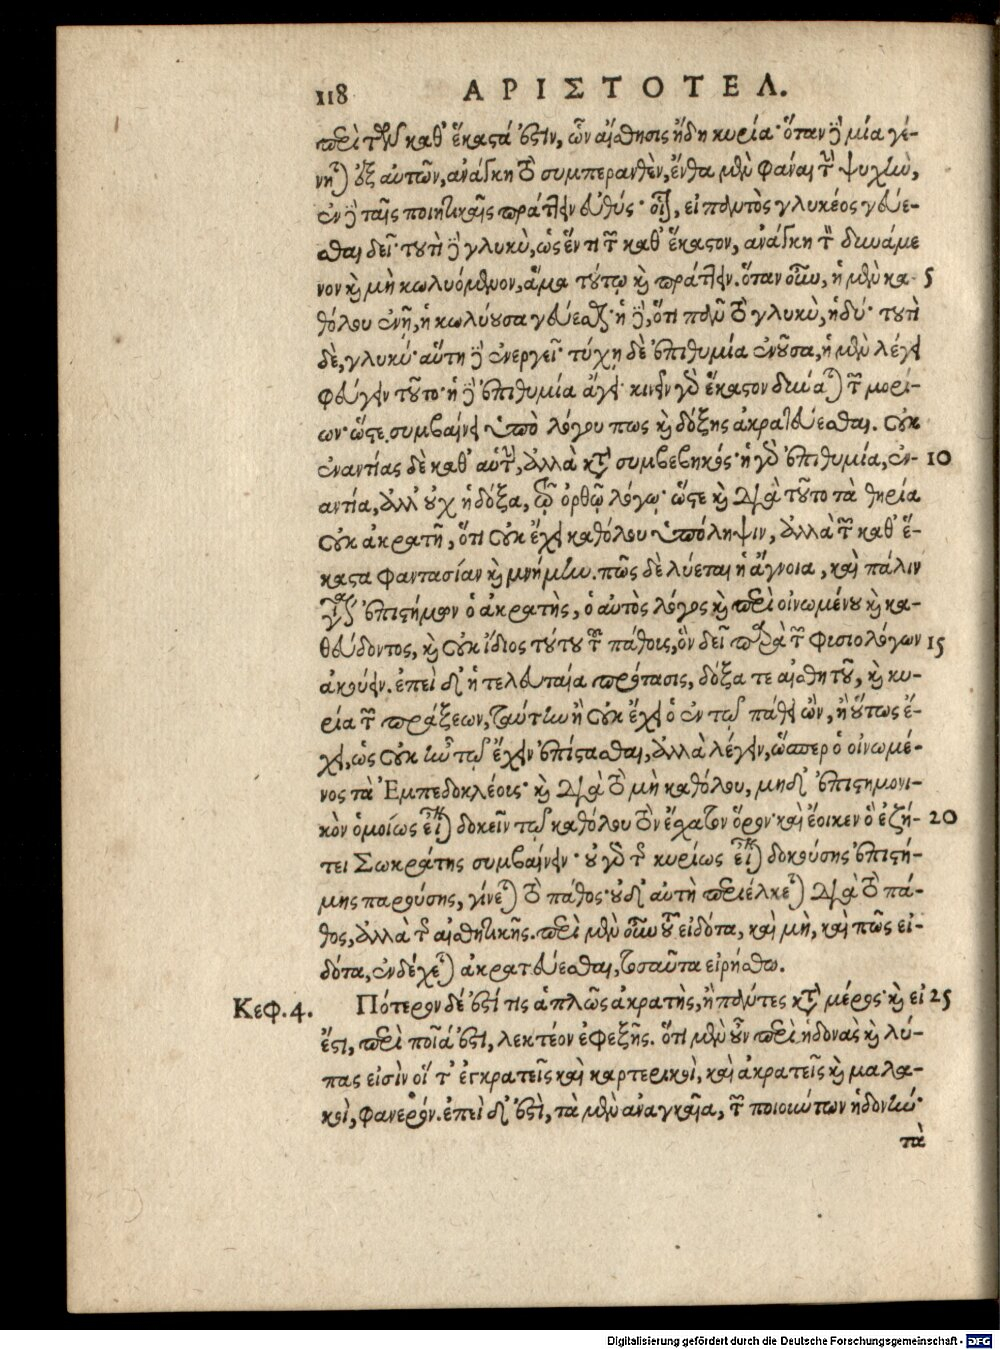 118 ΑΡΙΣΤΟΤΕΛ.
περὶ τῶν καθ' ἕκαστά ἐστιν, ὧν αἴσθησις ἤδη κυρία· ὅταν δὲ μία γέ-
νηται ἐξ αὐτῶν, ἀνάγκη τὸ συμπερανθὲν, ἔνθα μὲν φάναι τὴν ψυχὴν,
ἐν δὲ ταῖς ποιητικαῖς πράττειν εὐθύς· οἷον, εἰ παντὸς γλυκέος γεύε-
σθαι δεῖ· τουτὶ δὲ γλυκὺ, ὡς ἕν τι τῶν καθ' ἕκαστον, ἀνάγκη τὸν δυνάμε
νον καὶ μὴ κωλυόμενον, ἅμα τούτῳ καὶ πράττειν. ὅταν οὖν, ἡ μὲν κα- 5
θόλου ἐνῇ, ἡ κωλύουσα γεύεσθαι· ἡ δὲ, ὅτι πᾶν τὸ γλυκὺ, ἡδύ· τουτὶ
δὲ, γλυκύ· αὕτη δὲ ἐνεργεῖ· τύχῃ δὲ ἐπιθυμία ἐνοῦσα, ἡ μὲν λέγει
φεύγειν τοῦτο· ἡ δὲ ἐπιθυμία ἄγει· κινεῖν γὰρ ἕκαστον δύναται τῶν μορί-
ων· ὥστε συμβαίνει ὑπὸ λόγου πως καὶ δόξης ἀκρατεύεσθαι. οὐκ
ἐναντίας δὲ καθ' αὑτὴν, ἀλλὰ κατὰ συμβεβηκός· ἡ γὰρ ἐπιθυμία, ἐν- 10
αντία, ἀλλ' οὐχ ἡ δόξα, τῷ ὀρθῷ λόγῳ· ὥστε καὶ διὰ τοῦτο τὰ θηρία
οὐκ ἀκρατῆ, ὅτι οὐκ ἔχει καθόλου ὑπόληψιν, ἀλλὰ τῶν καθ' ἕ-
καστα φαντασίαν καὶ μνήμην. πῶς δὲ λύεται ἡ ἄγνοια, καὶ πάλιν
γίνεται ἐπιστήμων ὁ ἀκρατὴς, ὁ αὐτὸς λόγος καὶ περὶ οἰνωμένου καὶ κα-
θεύδοντος, καὶ οὐκ ἴδιος τούτου τοῦ πάθοις, ὃν δεῖ παρὰ τῶν φισιολόγων 15
ἀκούειν. ἐπεὶ δ' ἡ τελευταία πρότασις, δόξα τε αἰσθητοῦ, καὶ κυ-
ρία τῶν πράξεων, ταύτην ἢ οὐκ ἔχει ὁ ἐν τῷ πάθει ὢν, ἢ οὕτως ἔ-
χει, ὡς οὐκ ἦν τῷ ἔχειν ἐπίστασθαι, ἀλλὰ λέγειν, ὥσπερ ὁ οἰνωμέ-
νος τὰ Ἐμπεδοκλέοις· καὶ διὰ τὸ μὴ καθόλου, μηδ' ἐπιστημονι-
κὸν ὁμοίως εἶναι δοκεῖν τῷ καθόλου τὸν ἔσχατον ὅρον· καὶ ἔοικεν ὃ ἐζή- 20
τει Σωκράτης συμβαίνειν· οὐ γὰρ τῆς κυρίως εἶναι δοκούσης ἐπιστή-
μης παρούσης, γίνεται τὸ πάθος· οὐδ' αὐτὴ περιέλκεται διὰ τὸ πά-
θος, ἀλλὰ τῆς αἰσθητικῆς. περὶ μὲν οὖν τοῦ εἰδότα, καὶ μὴ, καὶ πῶς εἰ-
δότα, ἐνδέχεται ἀκρατεύεσθαι, τοσαῦτα εἰρήσθω.
Κεφ. 4. Πότερον δέ ἐστί τις ἁπλῶς ἀκρατὴς, ἢ πάντες κατὰ μέρος· καὶ εἰ 25
ἔστι, περὶ ποῖά ἐστι, λεκτέον ἐφεξῆς. ὅτι μὲν οὖν περὶ ἡδονὰς καὶ λύ-
πας εἰσὶν οἵ τ' ἐγκρατεῖς καὶ καρτερικοὶ, καὶ ἀκρατεῖς καὶ μαλα-
κοὶ, φανερόν. ἐπεὶ δ' ἐστὶ, τὰ μὲν ἀναγκαῖα, τῶν ποιούντων ἡδονήν·
τὰ
Digitalisierung gefördert durch die Deutsche Forschungsgemeinschaft - DFG